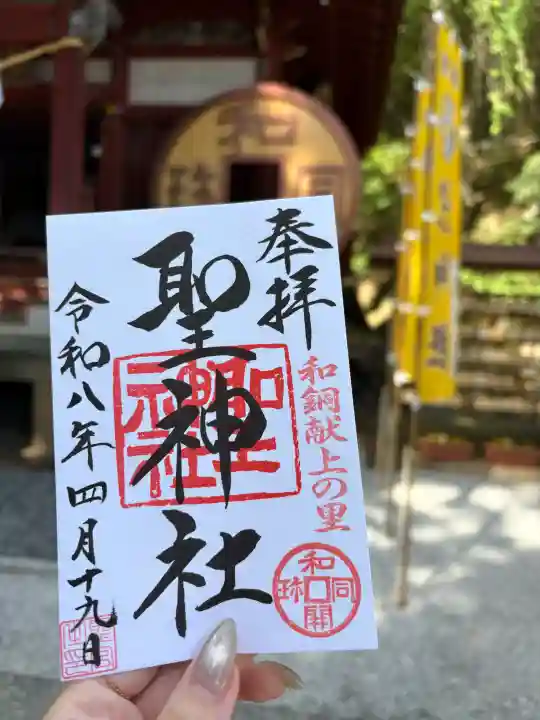 奉拝
和銅献上の里
和同開珎
聖神社
聖神社
令和八年四月十九日
和同